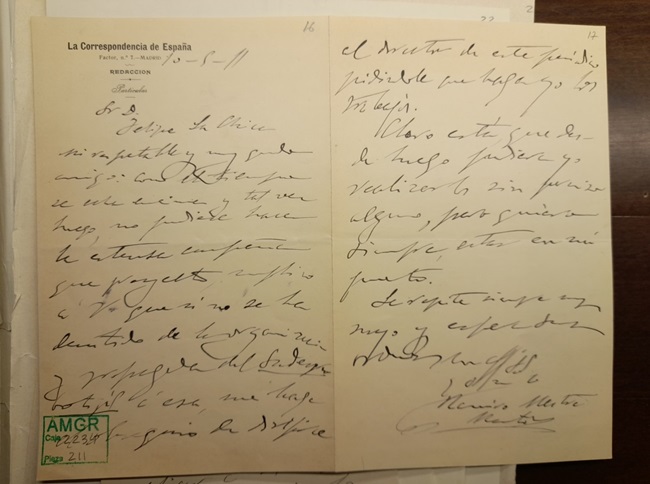 16
La Correspondencia de España
Factor, n.º 7.-MADRID
10-5-11
REDACCIÓN
Particular
Sr. D.
Felipe La Chica
mi respetable y muy querido
amigo: como el tiempo
se echa encima y tal vez
luego no pudiese hacer
la intensa campaña
que proyecto, suplico
a V. que si no se ha
desistido de la organización
y propaganda del
botijo a esa, me haga
obsequio de
AMGR
Caja 2234
Pieza 211
17
el director de este periódico
pidiéndole que haga yo los
trabajos.
Claro está que des-
de luego pudiera yo
realizarlos sin permiso
alguno, pero quiero
siempre estar en mi
puesto.
Se repite siempre muy
suyo y